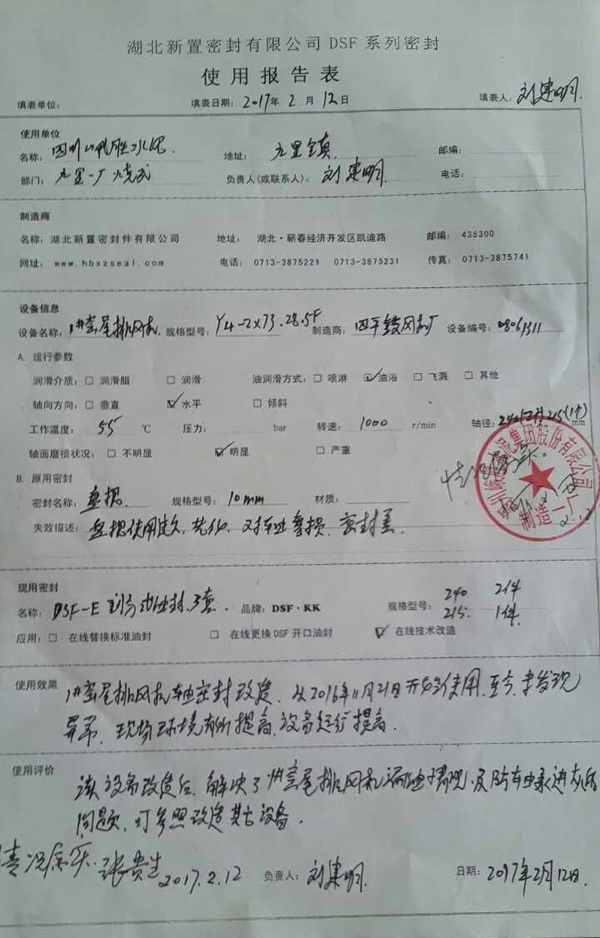 湖北新置密封有限公司 DSF 系列密封
使用报告表
填表单位: 填表日期: 2017年 2 月 12日 填表人: 刘建明
使用单位
名称: 四川 胜水泥 地址: 九里镇 邮编:
部门: 九里一厂烧成 负责人(或联系人): 刘建明 电话:
制造商
名称: 湖北新置密封件有限公司 地址: 湖北·蕲春经济开发区凯迪路 邮编: 435300
网址: www.hbxzseal.com 电话: 0713-3875221 0713-3875231 传真: 0713-3875741
设备信息
设备名称: 1#窑尾排风机 规格型号: Y4-2X73.28.5F 制造商: 四平鼓风机厂 设备编号: 08061311
A. 运行参数
润滑介质: □ 润滑脂 □ 润滑 油润滑方式: □ 喷淋 ☑ 油浴 □ 飞溅 □ 其他
轴向方向: □ 垂直 ☑ 水平 □ 倾斜
工作温度: 55 ℃ 压力: bar 转速: 1000 r/min 轴径: 240(2个) 215(1个) mm
轴面磨损状况: □ 不明显 ☑ 明显 □ 严重
B. 原用密封
密封名称: 盘根 规格型号: 10mm 材质:
失效描述: 盘根使用过久, 老化, 对轴磨损, 密封差
集团股份有限公司
制造一厂
2.12
现用密封
名称: DSF-E 剖分油封3套. 品牌: DSF·KK 规格型号: 240 2个
215. 1个
应用: □ 在线替换标准油封 □ 在线更换 DSF 开口油封 ☑ 在线技术改造
使用效果 1#窑尾排风机轴密封改造, 从2016年11月21日开始使用, 至今未发现
异常, 现场环境有所提高, 设备运行提高.
使用评价 该设备改造后, 解决了1#窑尾排风机漏油情况, 及 轴承进灰的
问题, 可参照改造其它设备.
情况属实. 张贵生 2017.2.12 负责人: 刘建明 日期: 2017年2月12日.